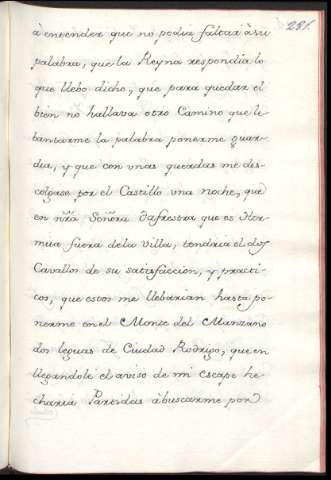 281.
à entender que no podia faltar à su
palabra, que la Reyna respondia lo
que llebo dicho, que para quedar el
bien no hallava otro Camino que le-
bantarme la palabra ponerme guar-
dia, y que con vnas querdas me des-
colgase por el Castillo vna noche, que
en nrã Señora que es Her-
mita fuera dela Villa, tendria el dos
Cavallos de su satisfaccion, y practi-
cos, que estos me llebarian hasta po-
nerme en el Monte del Manzano
dos leguas de Ciudad Rodrigo, que en
llegandole el aviso de mi escape he-
charia Partidas àbuscarme por